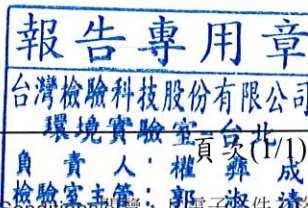 報告專用章
台灣檢驗科技股份有限公司
環境實驗室-台北
頁次(1/1)
負責人：權彝成
檢驗室主管：郭淑清